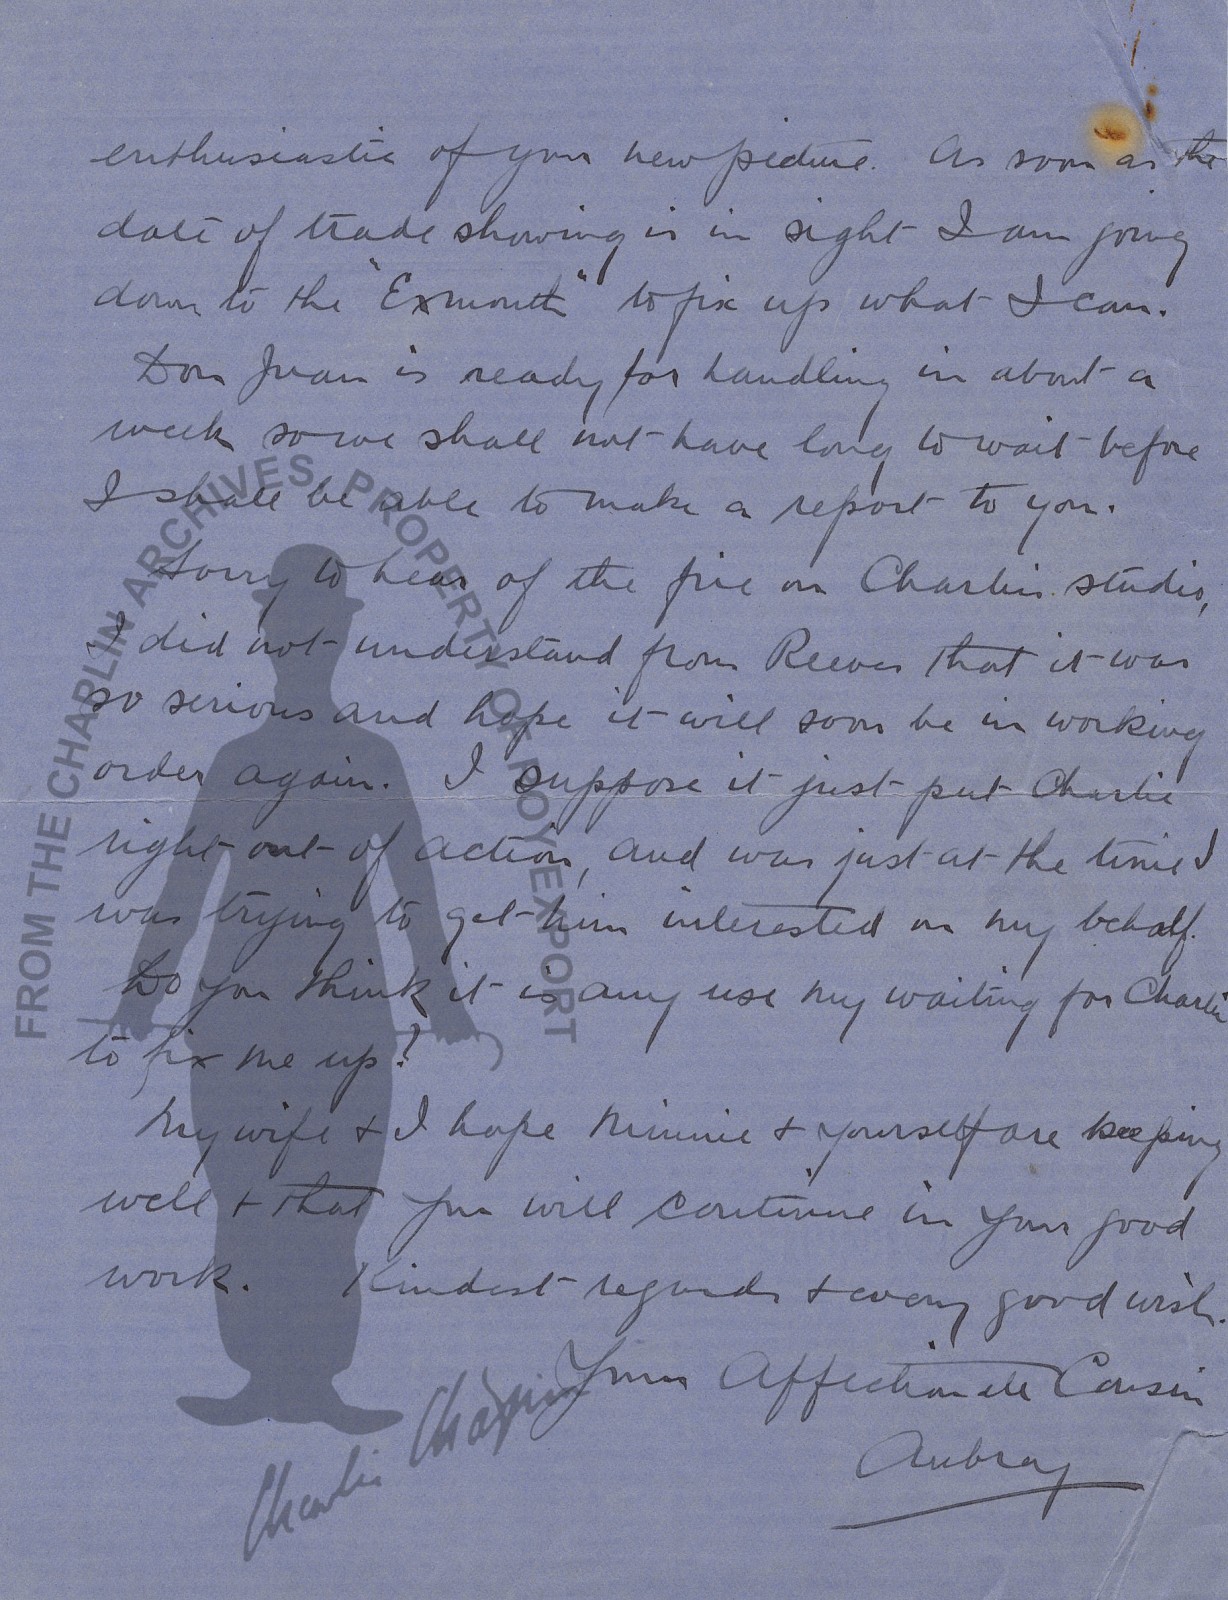 enthusiastic of your new picture. As soon as the
date of trade showing is in sight I am going
down to the "Exmouth" to fix up what I can.
Don Juan is ready for handling in about a
week so we shall not have long to wait before
I shall be able to make a report to you.
Sorry to hear of the fire on Charlie's studio,
I did not understand from Reeves that it was
so serious and hope it will soon be in working
order again. I suppose it just put Charlie
right out of action, and was just at the time I
was trying to get him interested on my behalf.
Do you think it is any use my waiting for Charlie
to fix me up?
My wife & I hope Minnie & yourself are keeping
well & that you will continue in your good
work. Kindest regards & every good wish.
Yours Affectionate Cousin
Aubrey
FROM THE CHAPLIN ARCHIVES, PROPERTY OF ROY EXPORT
Charlie Chaplin